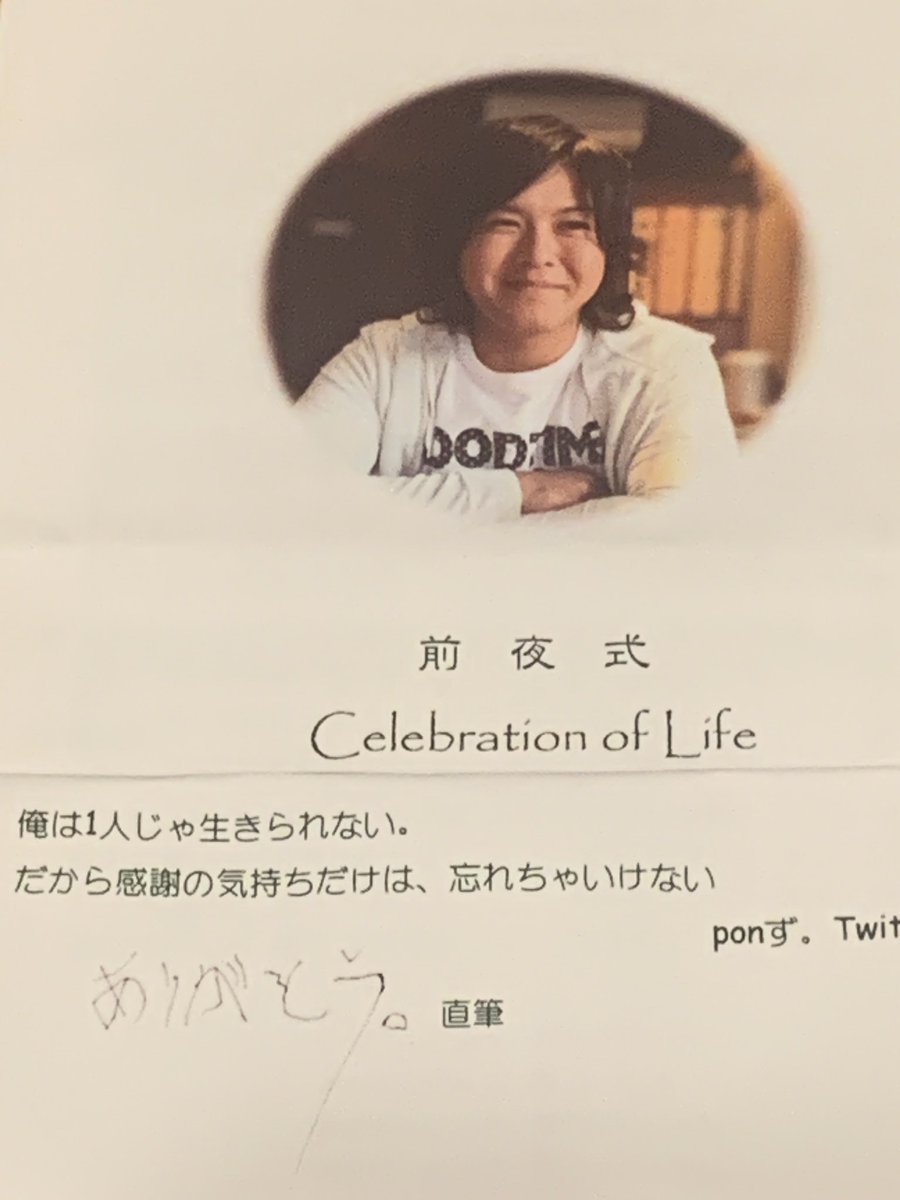 前夜式
Celebration of Life
俺は1人じゃ生きられない。
だから感謝の気持ちだけは、忘れちゃいけない
ponず。
ありがとう。 直筆